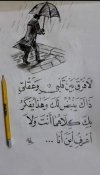 لَا فَرْقَ بَيْنَ قَلْبِي وَعَقْلِي
ذَاكَ يَنْبُضُ لَكَ وَهَذَا يُفَكِّرُ
بِكَ كِلَاهُمَا أَنْتَ وَلَا
أَعْرِفُ أَيْنَ أَنَا ...